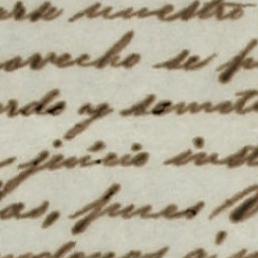 nuestro
ovecho se p
rdo y somet
juicio inst
as, pues